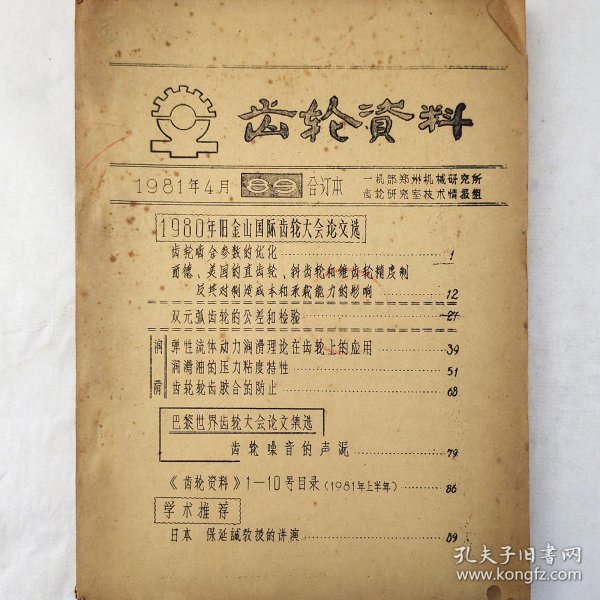 齿轮資料
1981年4月 89 合订本
一机部郑州机械研究所
齿轮研究室技术情报组
1980年旧金山国际齿轮大会论文选
齿轮啮合参数的优化 1
西德、美国的直齿轮、斜齿轮和锥齿轮精度制
及其对制造成本和承载能力的影响 12
双元弧齿轮的公差和检验 27
润滑
弹性流体动力润滑理论在齿轮上的应用 39
润滑油的压力粘度特性 51
齿轮轮齿胶合的防止 68
巴黎世界齿轮大会论文集选
齿轮噪音的声泥 79
《齿轮资料》1—10号目录(1981年上半年) 86
学术推荐
日本 保延誠教授的讲演 89
孔夫子旧书网
www.kongfz.com